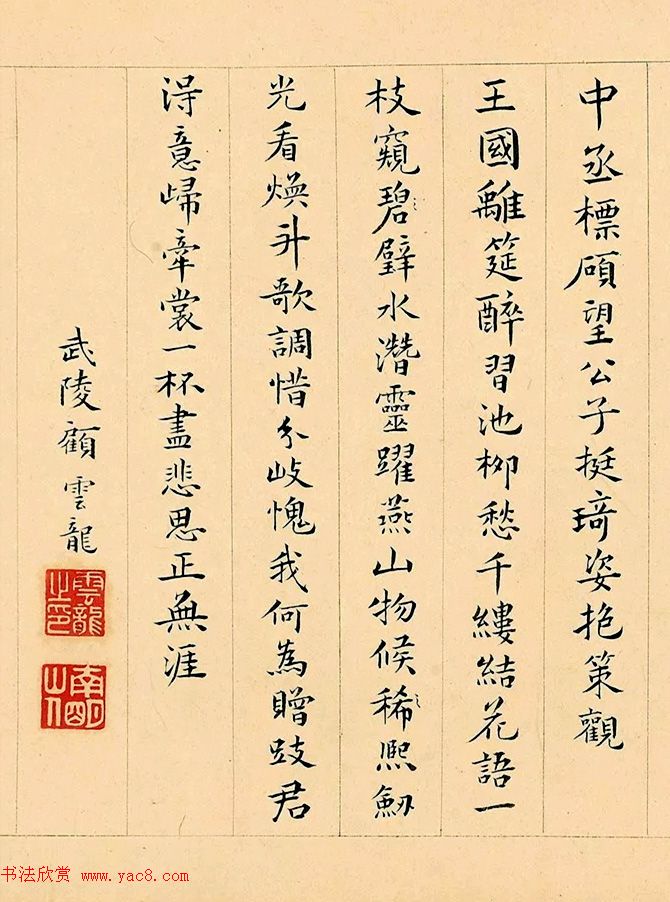 中丞標碩望公子挺琦姿抱策觀
王國離筵醉習池柳愁千縷結花語一
枝窺碧璧水潛靈躍燕山物候稀熙劔
光看煥斗歌調惜分岐愧我何為贈跂君
得意歸牽裳一杯盡悲思正無涯
武陵顧雲龍
雲龍之印
南明山人
书法欣赏 www.yac8.com